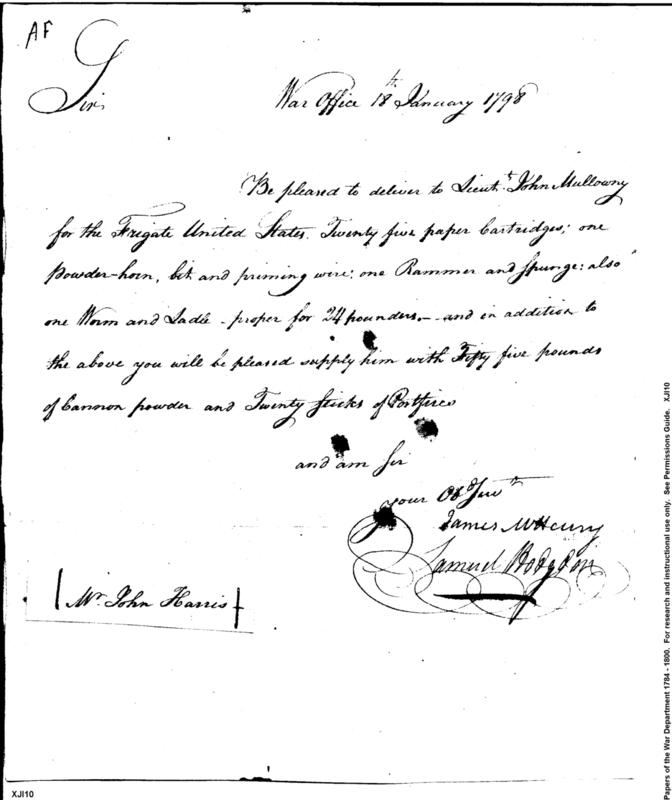 AF
Sir,
War Office 18th January 1798
Be pleased to deliver to Lieut.t John Mullowny
for the Frigate United States. Twenty five paper Cartridges; one
powder-horn, bit and priming wire; one Rammer and Spunge: also
one Worm and Ladle - proper for 24 pounders, - and in addition to
the above you will be pleased supply him with Fifty five pounds
of Cannon powder and Twenty Sticks of Portfires
and am Sir
your Ob Servt
James McHenry
Samuel Hodgdon
Mr. John Harris
XJI10
Papers of the War Department 1784 - 1800. For research and instructional use only. See Permissions Guide. XJI10